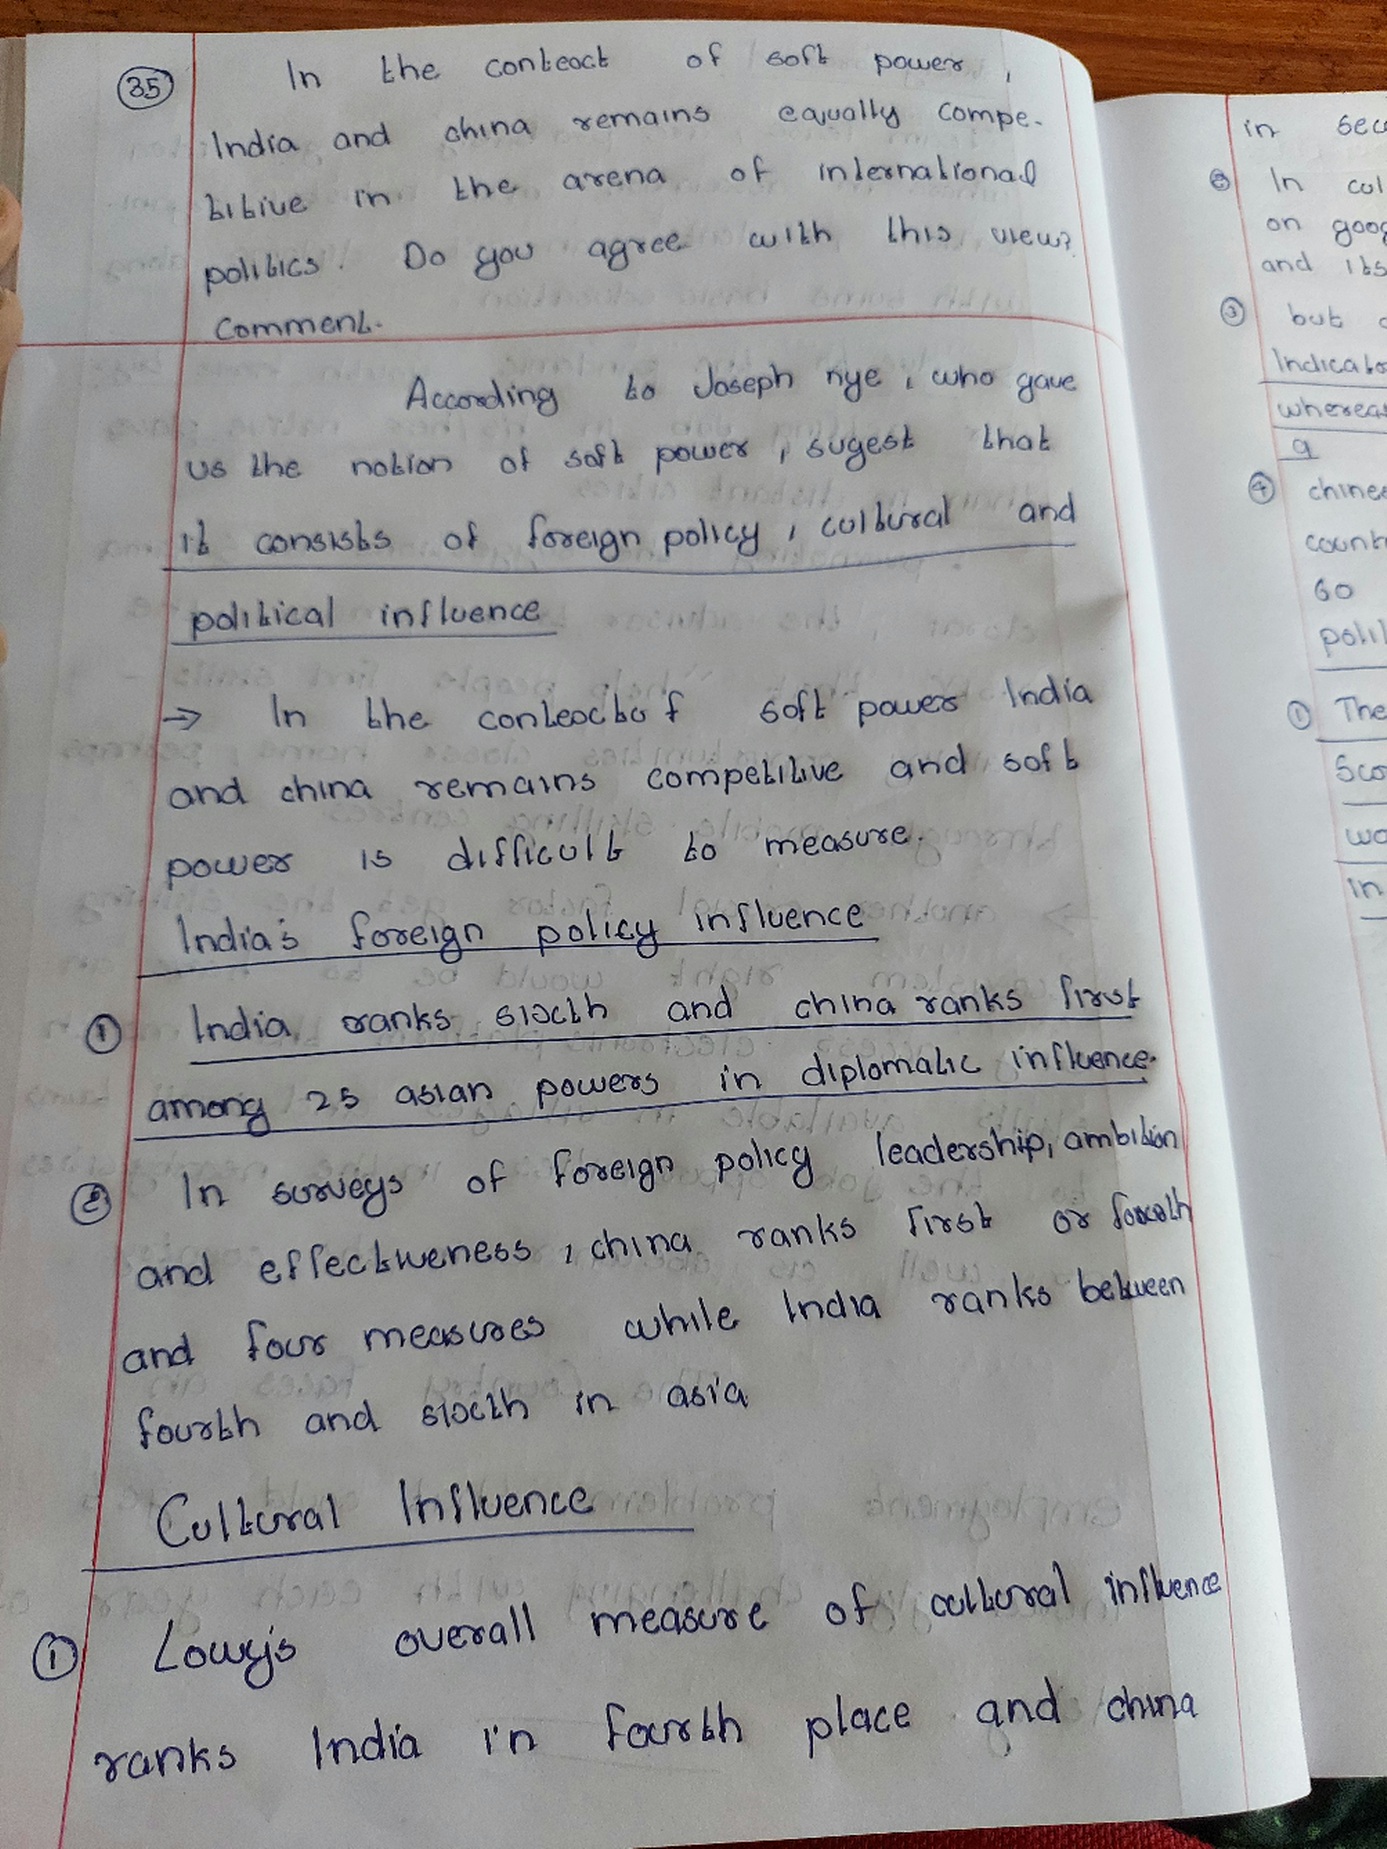 35
In the conteoct of soft power,
India and china remains equally compe-
titive in the arena of international
politics. Do you agree with this view?
Comment.
According to Joseph nye, who gave
us the notion of soft power, sugest that
it consists of foreign policy, cultural and
political influence
→ In the conteoctof soft power India
and china remains competitive and soft
power is difficult to measure.
India's foreign policy influence
① India ranks sixth and china ranks first
among 25 asian powers in diplomatic influence.
② In surveys of foreign policy leadership, ambition
and effectiveness, china ranks first or fourth
and four measures while India ranks between
fourth and sixth in asia
Cultural Influence
① Lowy's overall measure of cultural influence
ranks India in fourth place and china
in
② In
on
and its
③ but
whereas
a
④
60
① The
in